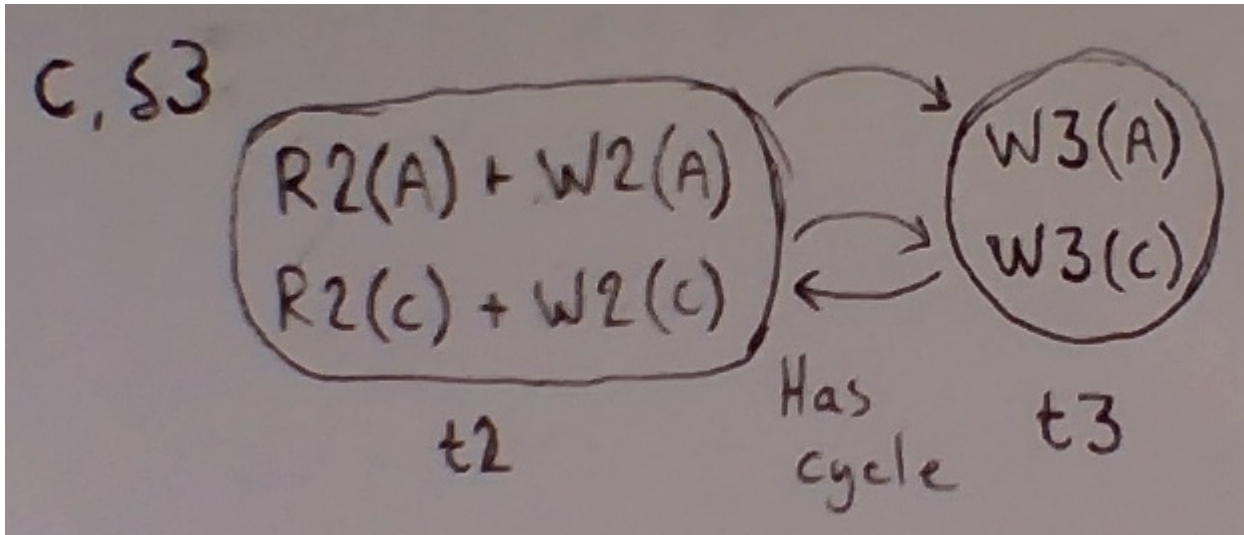 C, S3
R2(A) + W2(A)
R2(C) + W2(C)
t2
W3(A)
W3(C)
t3
Has
cycle